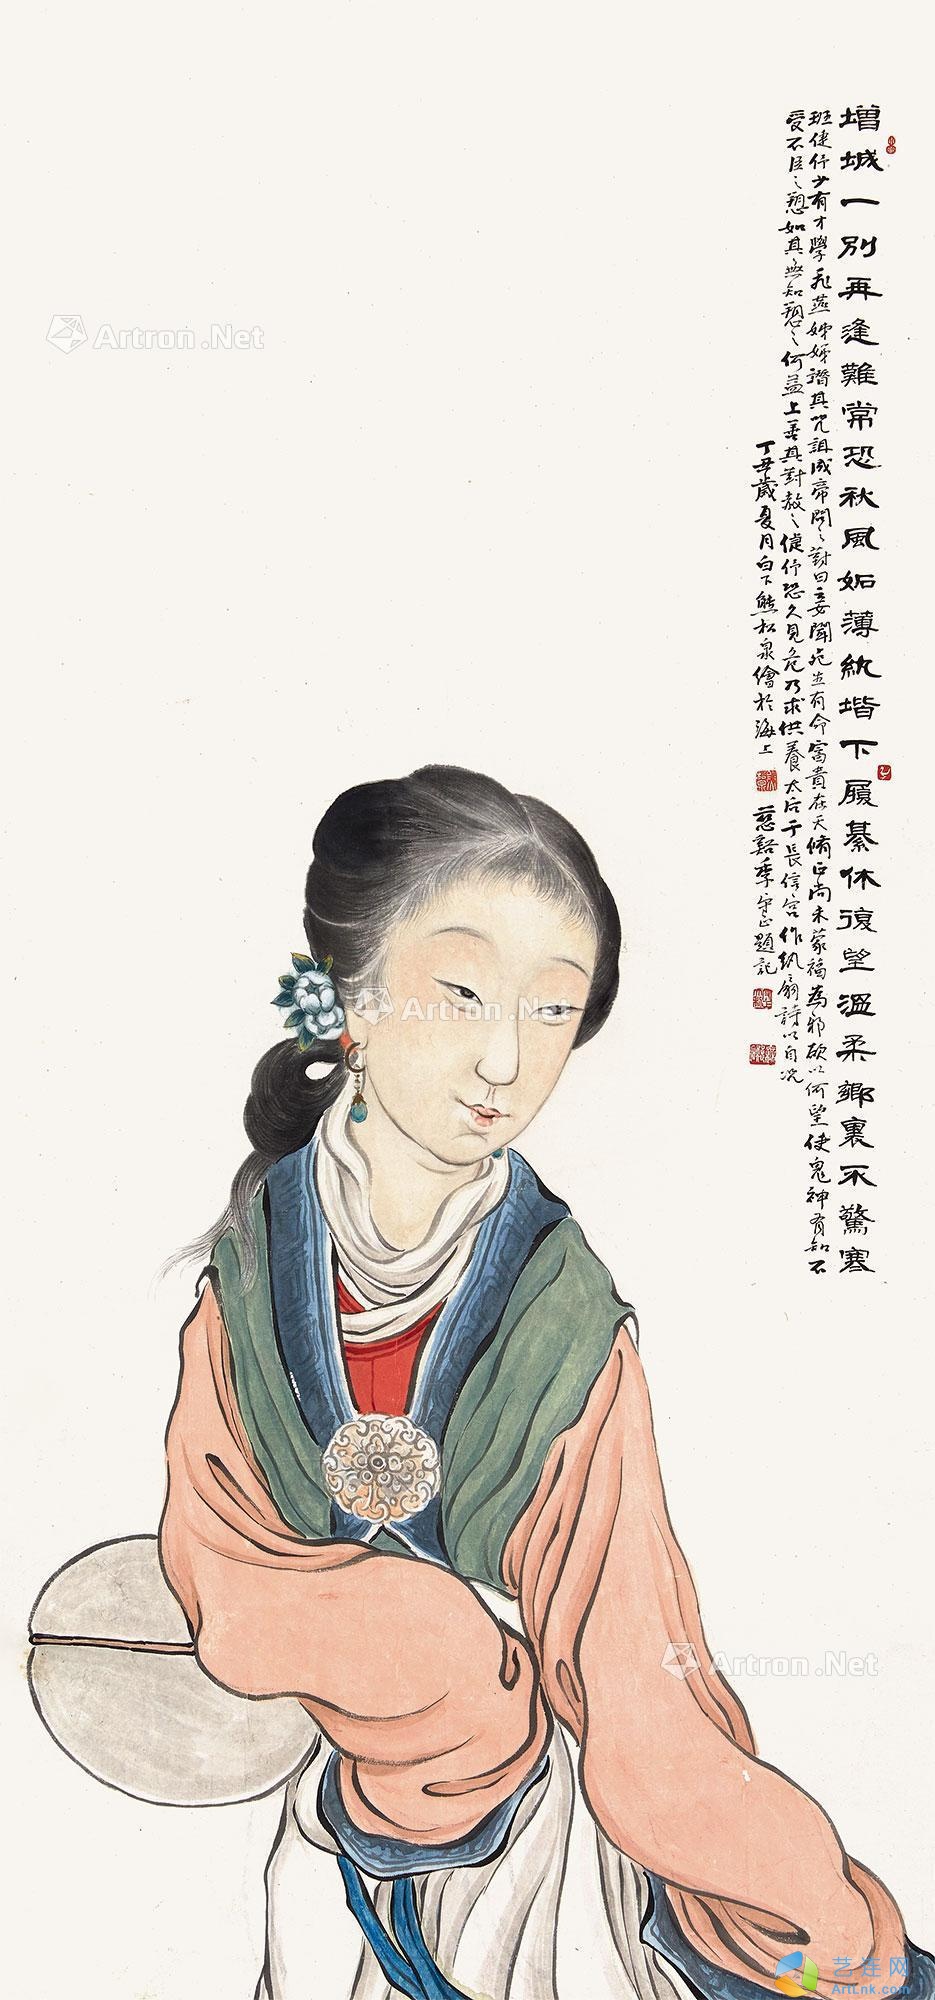 增城一別再逢難常恐秋風妬薄紈堦下履綦休復望溫柔鄉裏不驚寒
班倢伃少有才學飛燕姊娣譖其咒詛成帝問之對曰妾聞死生有命富貴在天脩正尚未蒙福為邪欲以何望使鬼神有知不
受不臣之愬如其無知愬之何益上善其對赦之倢伃恐久見危乃求供養太后于長信宮作紈扇詩以自況
丁丑歲夏月白下熊松泉繪於海上
慈谿季守正題記
Artron.Net
Artron.Net
Artron.Net
艺连网
ArtLnk.Com